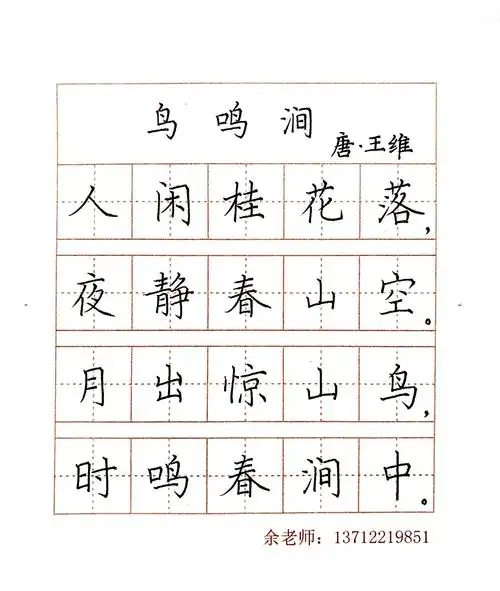 鸟鸣涧
唐·王维
人闲桂花落，
夜静春山空。
月出惊山鸟，
时鸣春涧中。
余老师：13712219851